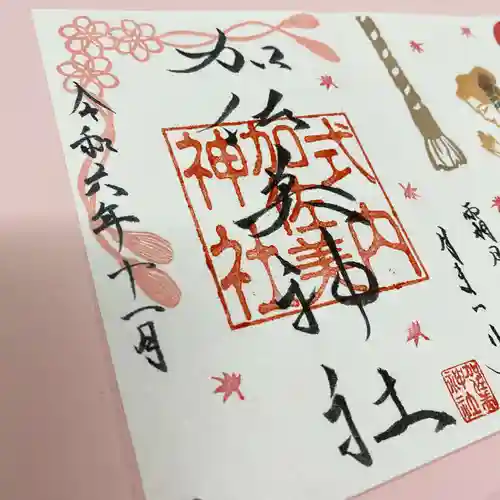 加佐美神社
式内
加佐美
神社
令和六年十一月
加佐美
神社